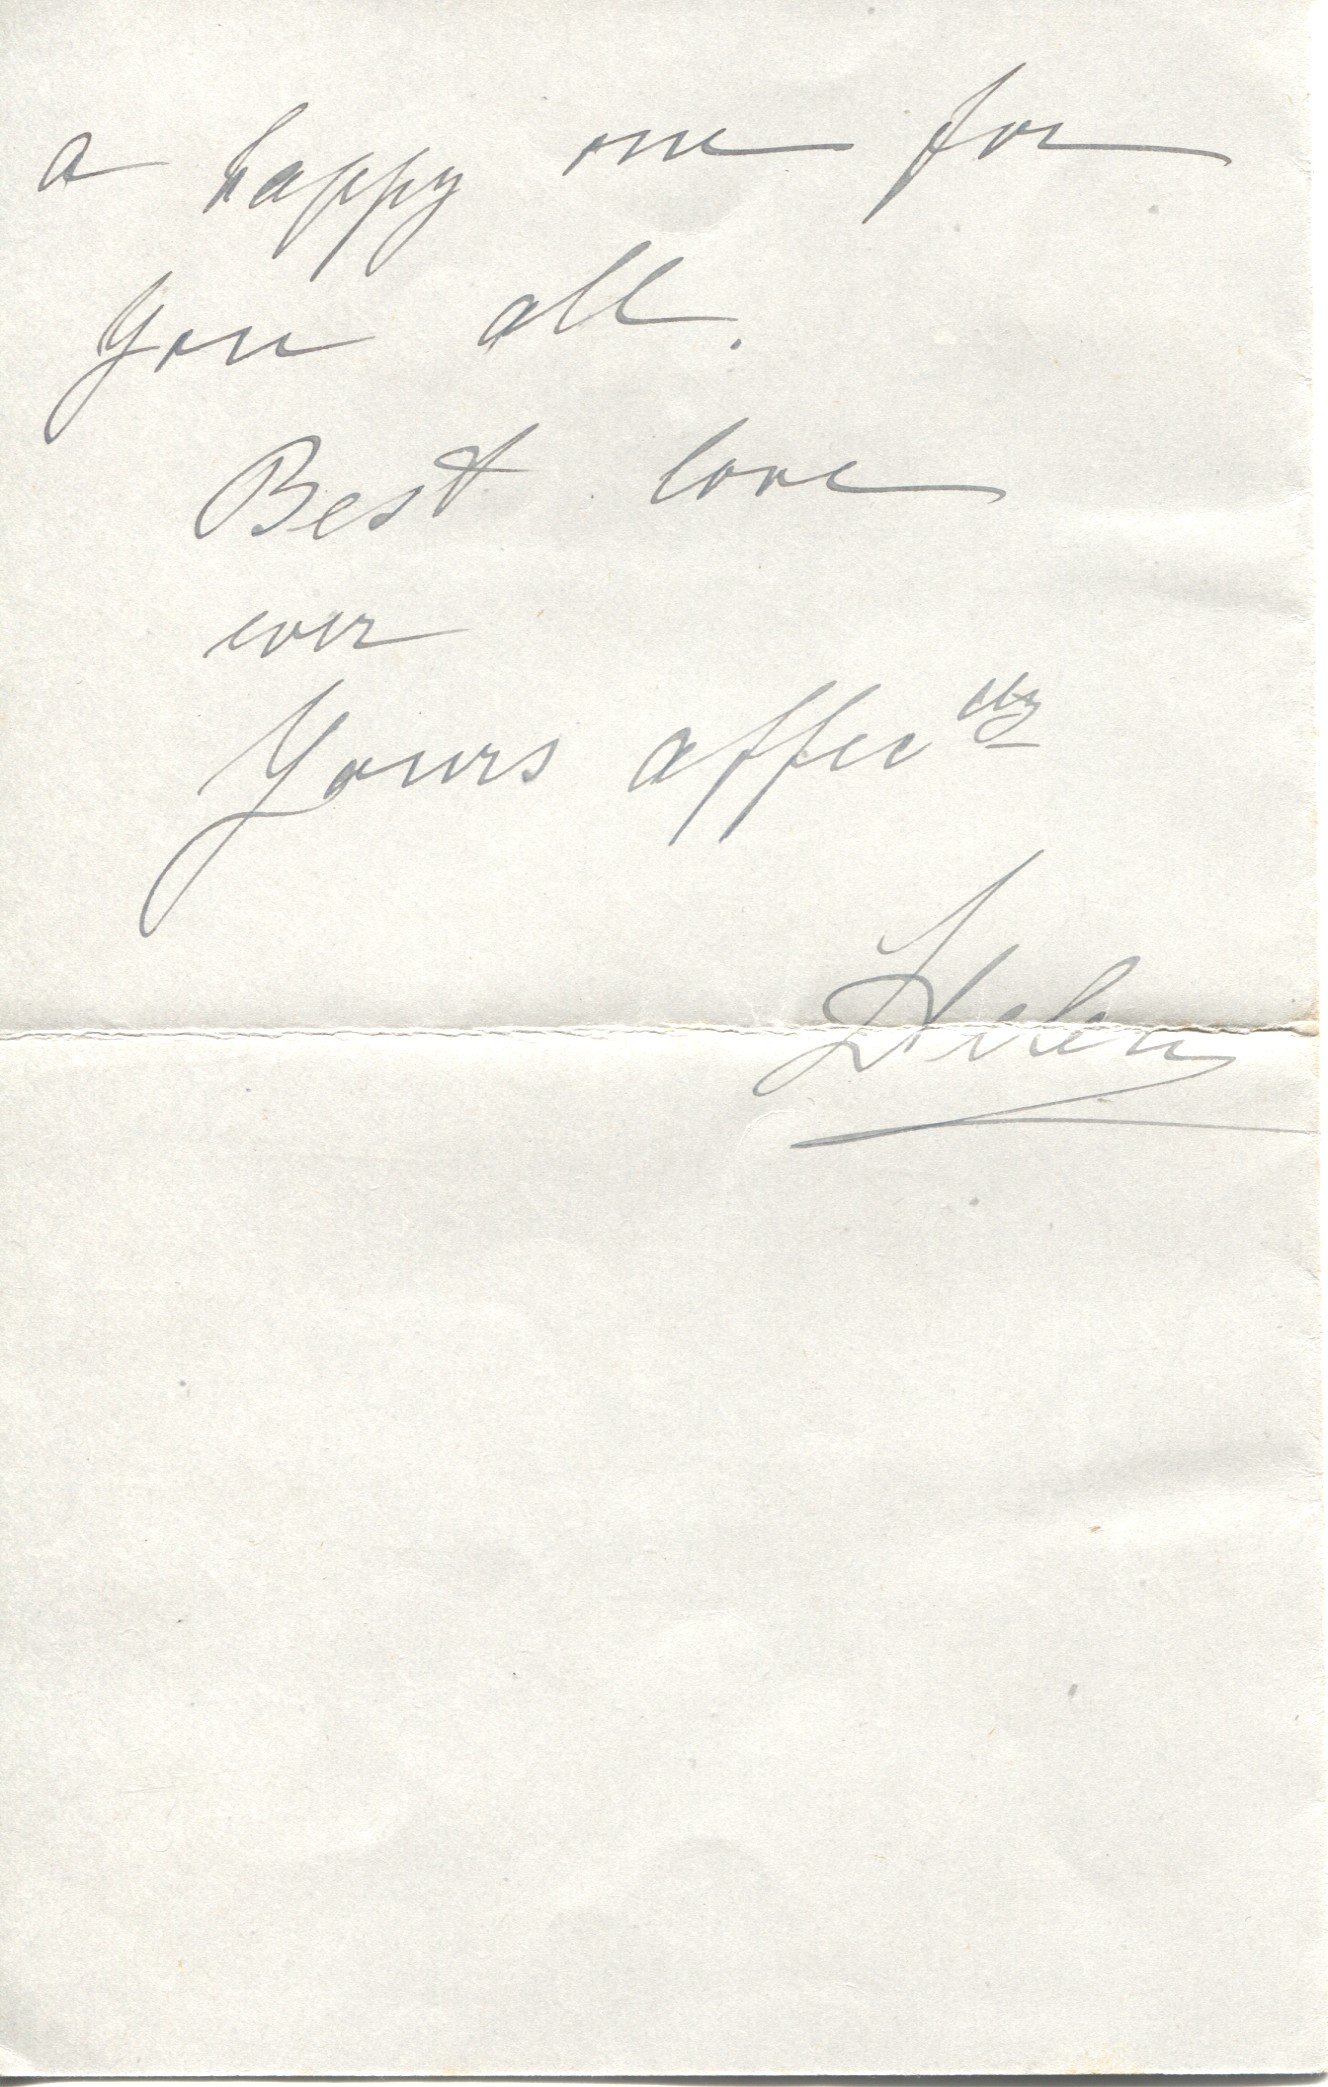 a happy one for
you all.
Best love
ever
Yours affectly
Helen